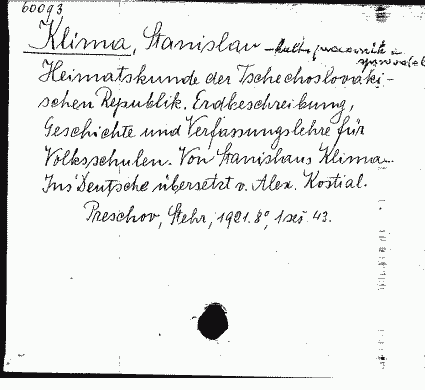 60093
Klima, Stanislav - kult. pracovník a
spisovatel
Heimatskunde der Tschechoslovaki-
schen Republik. Erdbeschreibung,
Geschichte und Verfassungslehre für
Volksschulen. Von Stanislaus Klima.
Ins Deutsche übersetzt v. Alex. Kostial.
Preschov, Stehr, 1921. 8°, 1 seš 43.